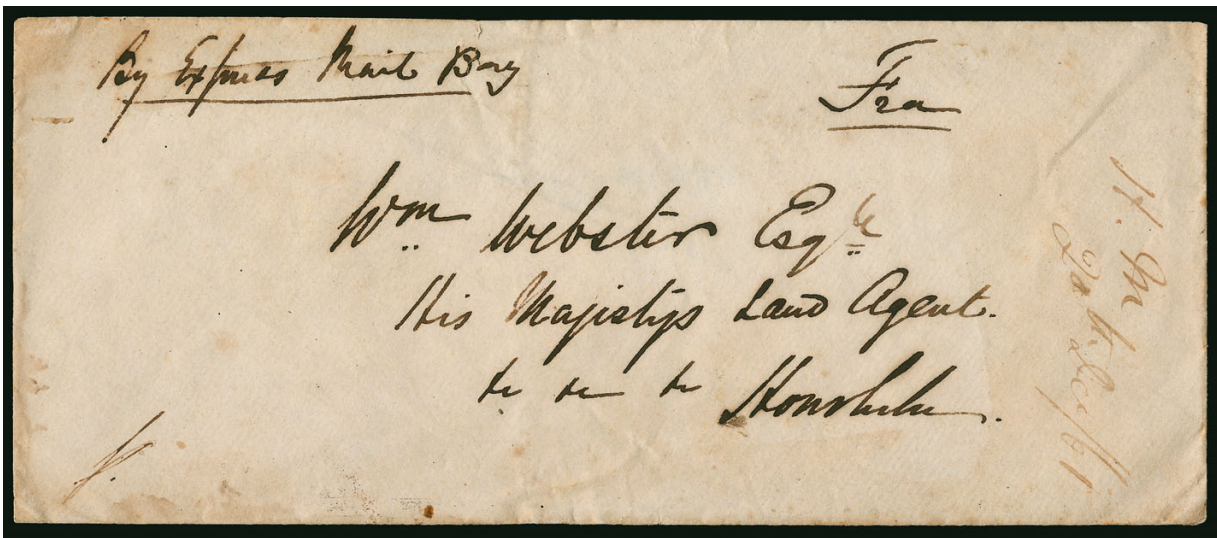 By Express Mail Bag
Fra
Wm Webster Esqre
His Majistys Land Agent.
&c &c &c Honolulu.
H. M
Dec/61